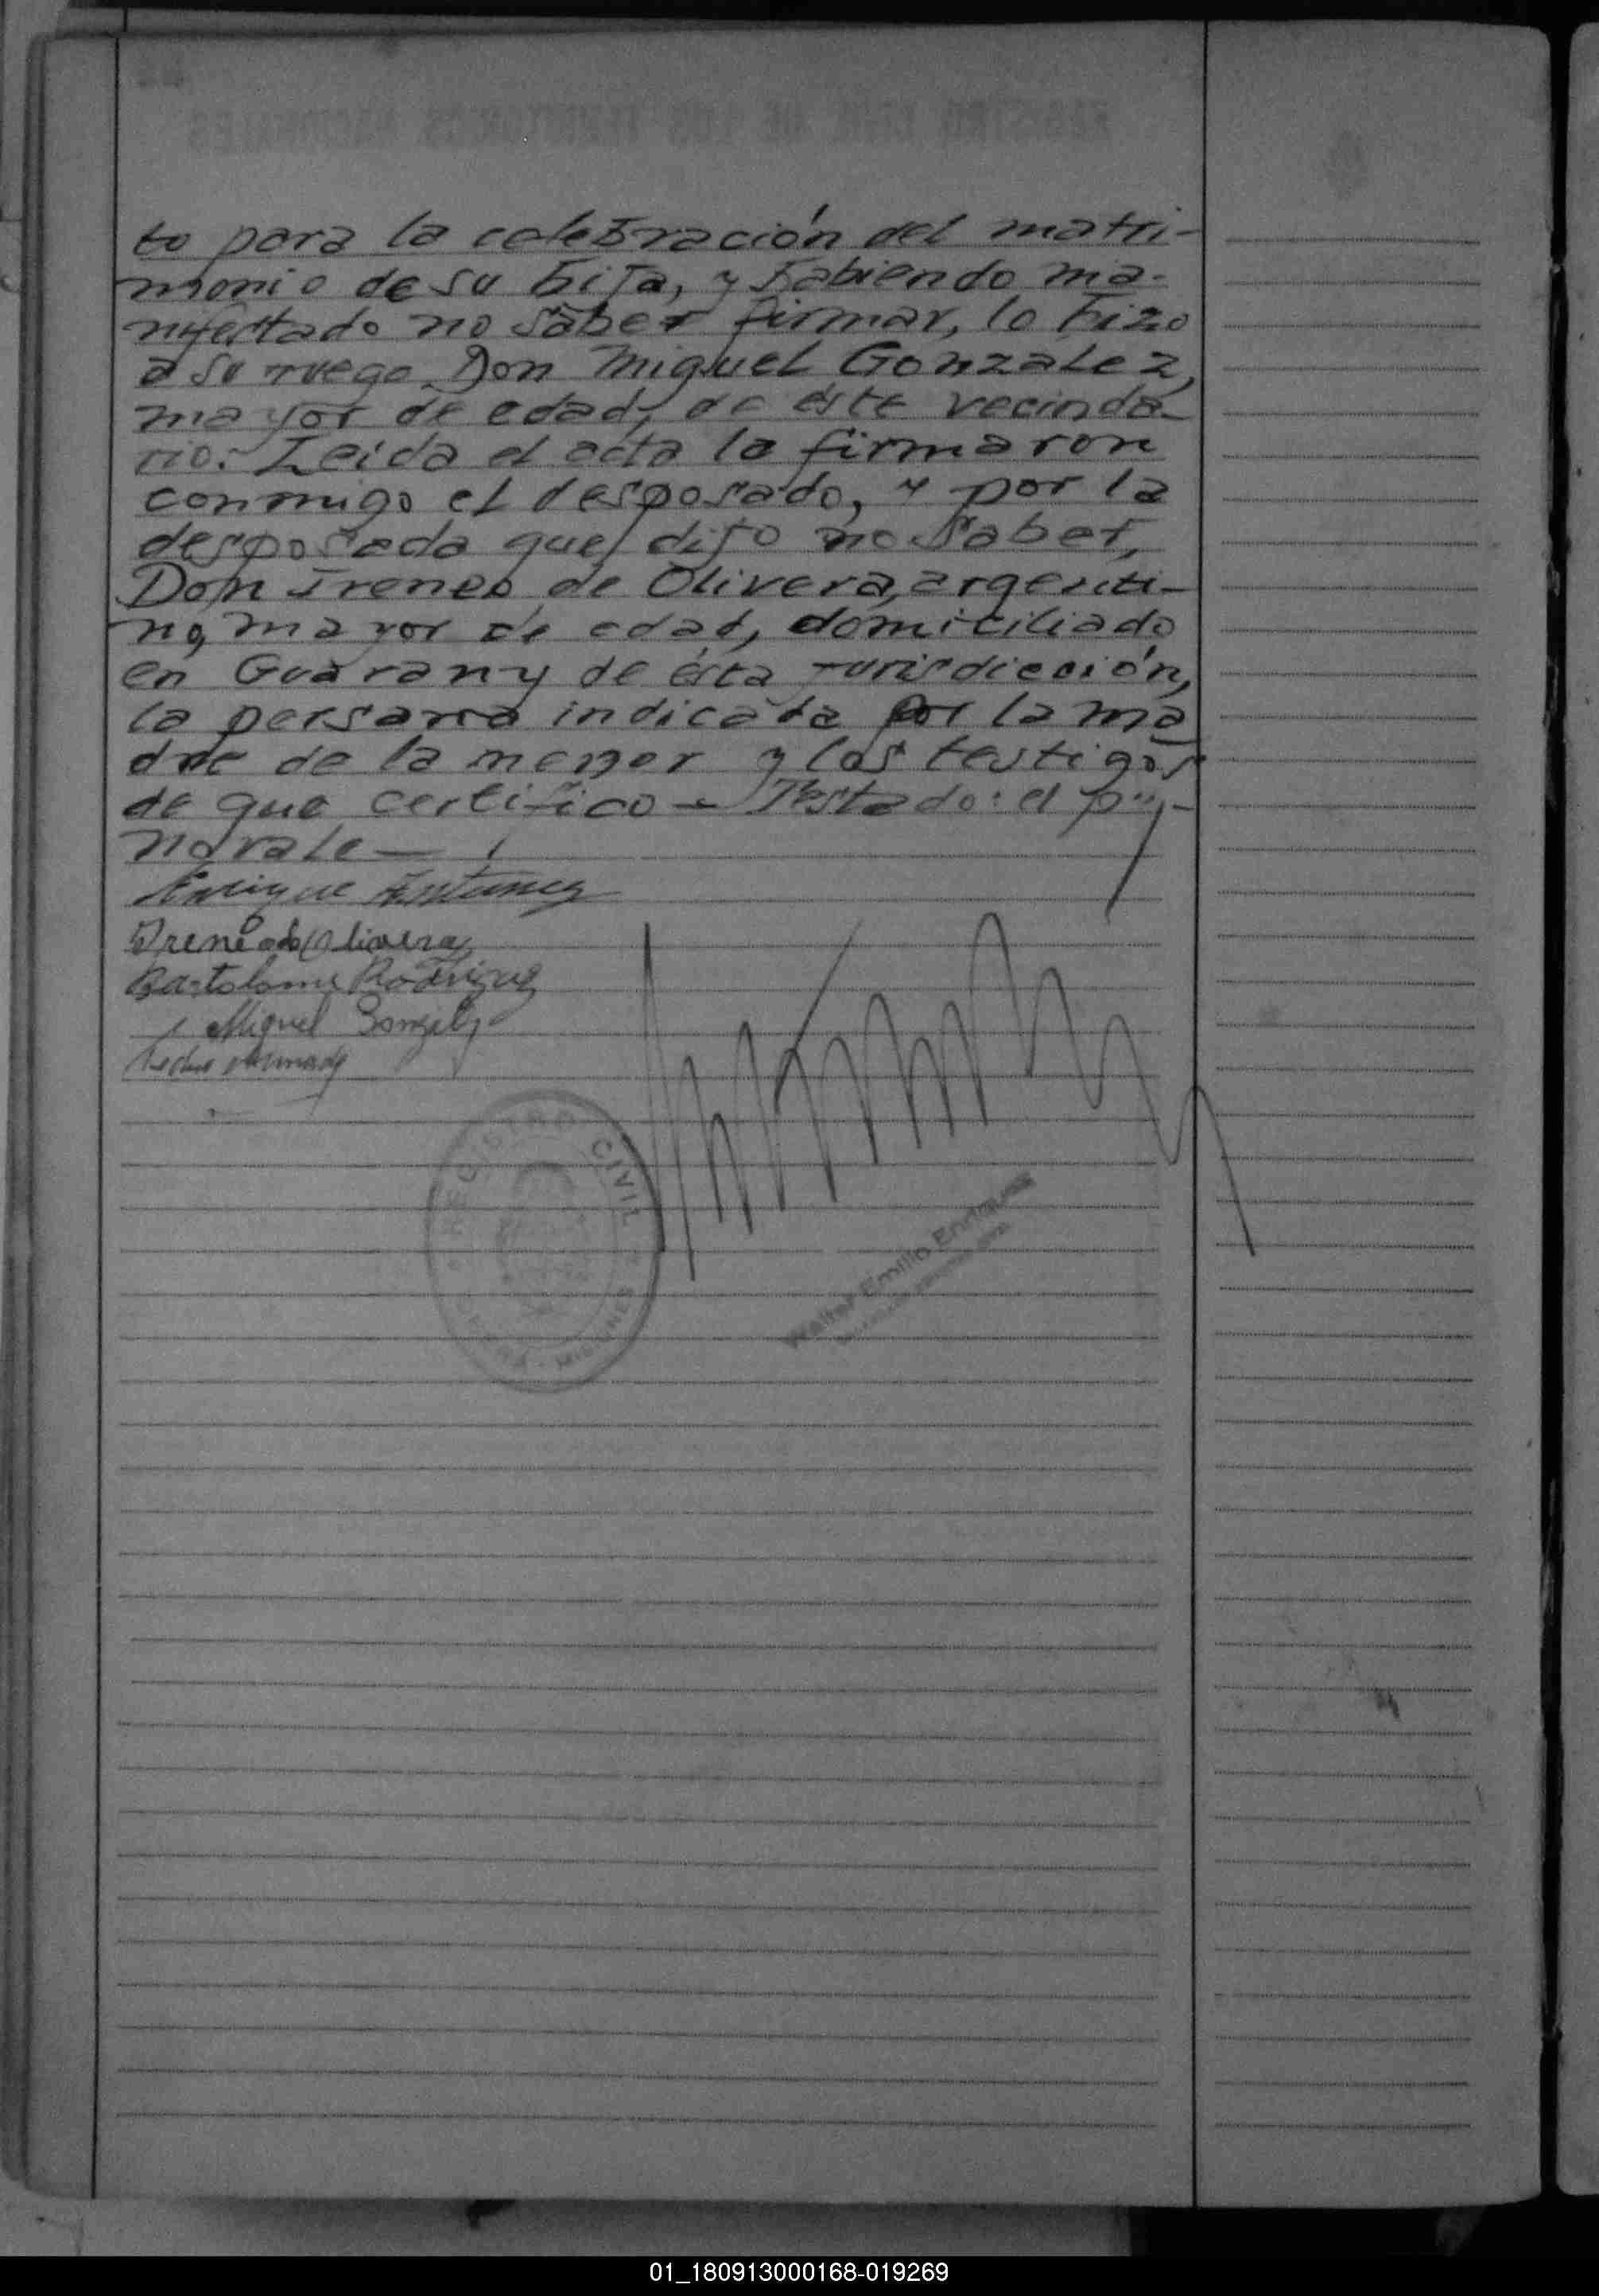 to para la celebración del matri-
monio de su hija, y habiendo ma-
nifestado no saber firmar, lo hizo
a su ruego Don Miguel Gonzalez,
mayor de edad, de éste vecinda-
rio. Leida el acta la firmaron
conmigo el desposado, y por la
desposada que dijo no saber,
Don Ireneo de Olivera, argenti-
no, mayor de edad, domiciliado
en Guarany de ésta jurisdicción,
la persona indicada por la ma
dre de la menor y los testigos
de que certifico - Testado: el p",-
no vale -
Enrique Antunez
Ireneo de Olivera
Bartolome Rodriguez
Miguel Gonzalez
REGISTRO CIVIL
MISIONES
Walter Emilio Enriquez
01_180913000168-019269